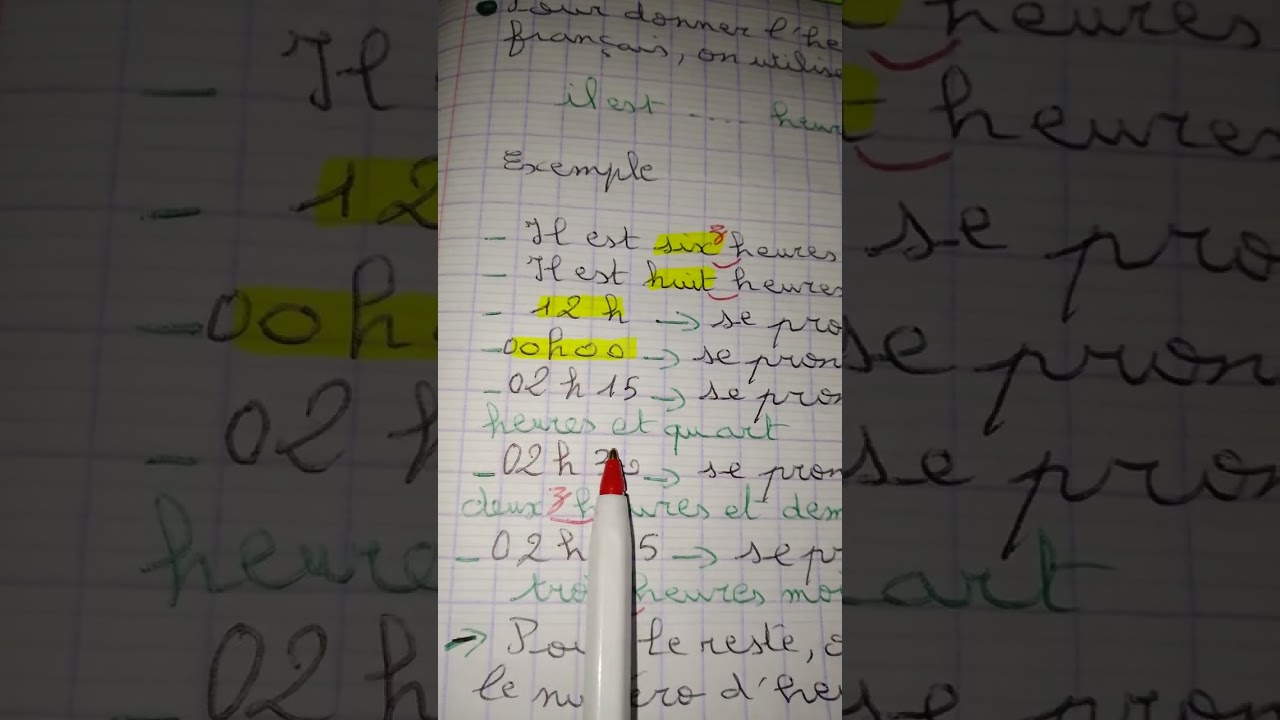 Pour donner l'he
français, on utilise
il est .... heur
Exemple
- Il est six z heures
- Il est huit heures
- 12 h → se pro
- 00h00 → se pron
- 02 h 15 → se pron
heures et quart
- 02 h → se pron
deux z heures et dem
- 02 h 5 → se p
heures mo
→ le reste, 
le d'he